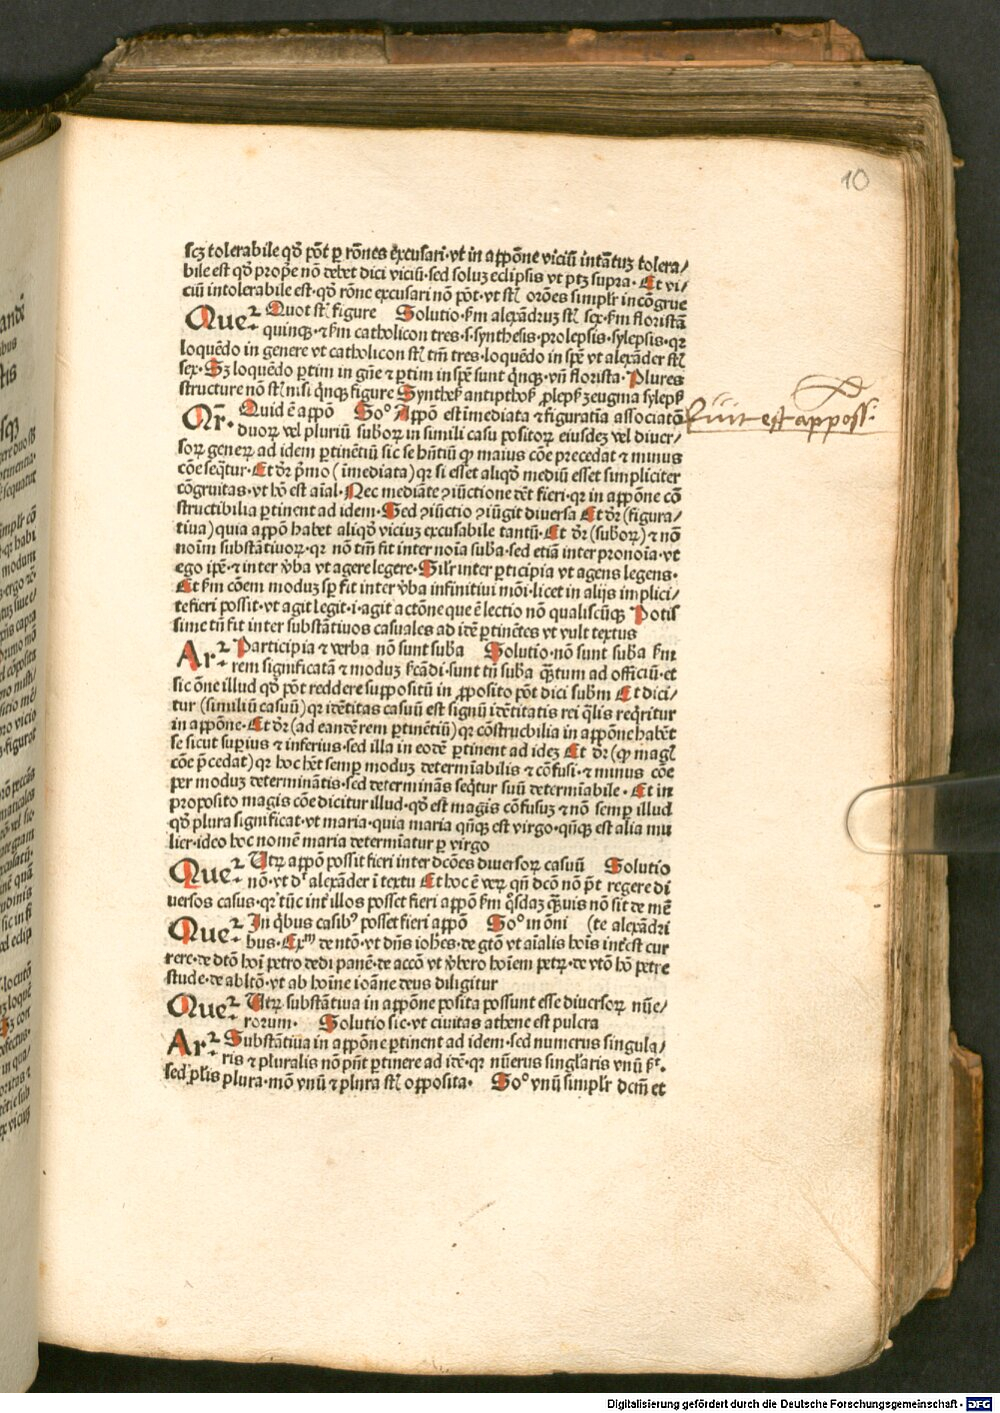 10
scꝫ tolerabile qđ põt ꝑ rõnes excusari·vt in appõne viciũ intãtuꝫ tolera/
bile est qđ prop̃e nõ debet dici viciũ·sed soluꝫ eclipsis vt ptꝫ supra·Et vi/
ciũ intolerabile est·qđ rõne excusari nõ põt·vt st̃ orões simplr̃ incõgrue
Que² Quot st̃ figure Solutio·ẜm alexãdruꝫ st̃ sex·ẜm floristã
quinqꝫ·⁊ ẜm catholicon tres·s·synthesis·prolepsis·sylepsis·qꝛ
loquẽdo in genere vt catholicon st̃ tm̃ tres·loquẽdo in spẽ vt alexãder st̃
sex·Sꝫ loquẽdo ꝑtim in gñe ⁊ ꝑtim in spẽ sunt q̃nqꝫ·vñ florista·Plures
structure nõ st̃ nisi q̃nqꝫ figure Synthes̃ antiptos̃ ꝓleps̃ zeugma syleps̃
Qr̃· Quid ẽ appõ Soº Appõ est ĩmediata ⁊ figuratĩa associatõ
fuit est apposs:
duoꝝ vel pluriũ subʼoꝝ in simili casu positoꝝ eiusdeꝫ vel diuer/
soꝝ geneꝝ ad idem ꝑtinẽtiũ sic se hñtiũ ꝙ maius cõe precedat ⁊ minus
cõe seq̃tur·Et dr̃ p̃mo (ĩmediata) qꝛ si esset aliqđ mediũ esset simpliciter
cõgruitas·vt hõ est aĩal·Nec mediãte ɔiũctione dẽt fieri·qꝛ in appõne cõ
structibilia ꝑtinent ad idem·Sed ɔiũctio ɔiũgit diuersa Et dr̃ (figura/
tiua) quia appõ habet aliqđ viciuꝫ excusabile tantũ·Et dr̃ (subʼoꝝ) ⁊ nõ
noĩm substãtiuoꝝ·qꝛ nõ tm̃ fit inter noĩa subʼa·sed etiã inter pronoĩa·vt
ego ip̃e·⁊ inter v̾ba vt agere legere·Silr̃ inter ꝑticipia vt agens legens·
Et ẜm cõem moduꝫ sꝑ fit inter v̾ba infinitiui mõi·licet in alijs implici/
te fieri possit·vt agit legit·i·agit actõne que ẽ lectio nõ qualiscũqꝫ Potis
sime tñ fit inter substãtiuos casuales ad idẽ ꝑtinẽtes vt vult textus
Ar² Participia ⁊ verba nõ sunt subʼa Solutio·nõ sunt subʼa ẜm
rem significatã ⁊ moduꝫ ẜcãdi·sunt tñ subʼa q̃ꝫtum ad officiũ·et
sic õne illud qđ põt reddere suppositũ in ꝓposito põt dici subʼm Et dici/
tur (similiũ casuũ) qꝛ idẽtitas casuũ est signũ idẽtitatis rei q̃lis reqritur
in appõne·Et dr̃ (ad eandẽ rem ꝑtinẽtiũ) qꝛ cõstructbilia in appõne habẽt
se sicut supius ⁊ inferius·sed illa in eodẽ ꝑtinent ad ideꝫ Et dr̃ (ꝙ magĩ
cõe p̃cedat) qꝛ hoc hẽt semꝑ moduꝫ determĩabilis ⁊ cõfusi·⁊ minus cõe
per moduꝫ determinãtis·sed determinãs seq̃tur suũ determĩabile·Et in
proposito magis cõe dicitur illud·qđ est magis cõfusuꝫ ⁊ nõ semꝑ illud
qđ plura significat·vt maria·quia maria qñqꝫ est virgo·qñqꝫ est alia mu
lier·ideo hoc nomẽ maria determĩatur ꝑ virgo
Que² Vtꝝ appõ possit fieri inter dcões diuersoꝝ casuũ Solutio
nõ·vt dʼ alexãder ĩ textu Et hoc ẽ veꝝ qñ dcõ nõ p̃t regere di
uersos casus·qꝛ tũc int̾ illos posset fieri appõ ẜm q̃sdaꝫ q̃ꝫuis nõ sit de mẽ
Que² In q̃bus casibꝰ posset fieri appõ Soº in õni (te alexãdri
bus·Exᵐ de ntõ·vt dñs iohẽs·de gtõ vt aĩalis hoĩs int̾est cur
rere·de dtõ hoĩ petro dedi panẽ·de accõ vt v̾bero hoĩem petꝝ·de vtõ hõ petre
stude·de abltõ·vt ab hoĩne ioãne deus diligitur
Que² Vtꝝ substãtiua in appõne posita possunt esse diuersoꝝ nũe/
rorum· Solutio sic·vt ciuitas athene est pulcra
Ar² Substãtiua in appõne ꝑtinent ad idem·sed numerus singula/
ris ⁊ pluralis nõ pñt ꝑtinere ad idẽ·qꝛ nũerus singl̃aris vnũ ẜt·
sed pl̃is plura·mõ vnũ ⁊ plura st̃ opposita· Soº vnũ simplr̃ dcm̃ et
Digitalisierung gefördert durch die Deutsche Forschungsgemeinschaft - DFG